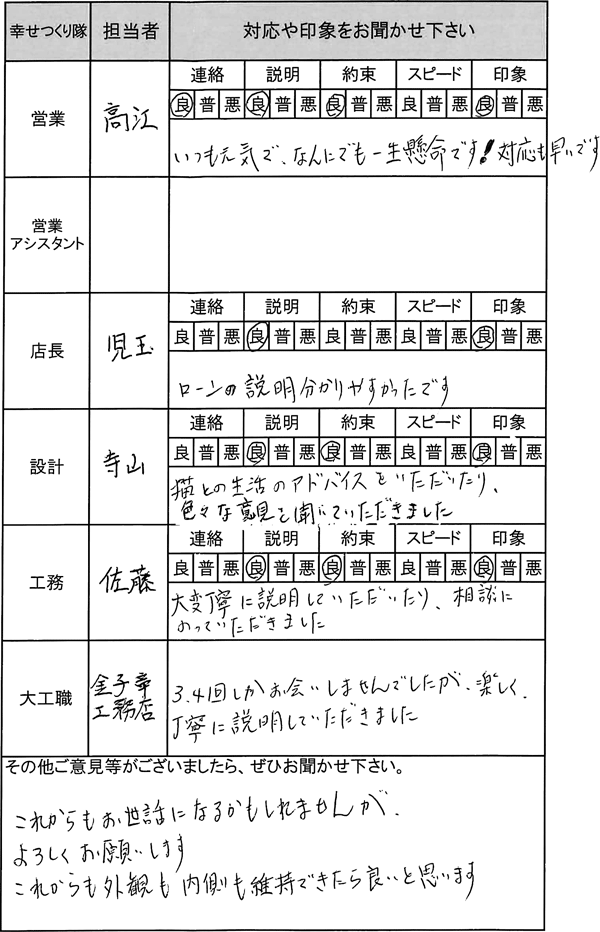 幸せつくり隊 担当者 対応や印象をお聞かせ下さい
営業 高江
連絡 説明 約束 スピード 印象
良 普 悪 良 普 悪 良 普 悪 良 普 悪 良 普 悪
いつも元気で、なんにでも一生懸命です!対応も早いです
営業
アシスタント
店長 児玉
連絡 説明 約束 スピード 印象
良 普 悪 良 普 悪 良 普 悪 良 普 悪 良 普 悪
ローンの説明分かりやすかったです
設計 寺山
連絡 説明 約束 スピード 印象
良 普 悪 良 普 悪 良 普 悪 良 普 悪 良 普 悪
猫との生活のアドバイスをいただいたり、
色々な意見を聞いていただきました
工務 佐藤
連絡 説明 約束 スピード 印象
良 普 悪 良 普 悪 良 普 悪 良 普 悪 良 普 悪
大変丁寧に説明していただいたり、相談に
のっていただきました
大工職 金子幸
工務店
3.4回しかお会いしませんでしたが、楽しく、
丁寧に説明していただきました
その他ご意見等がございましたら、ぜひお聞かせ下さい。
これからもお世話になるかもしれませんが、
よろしくお願いします
これからも外観も内側も維持できたら良いと思います